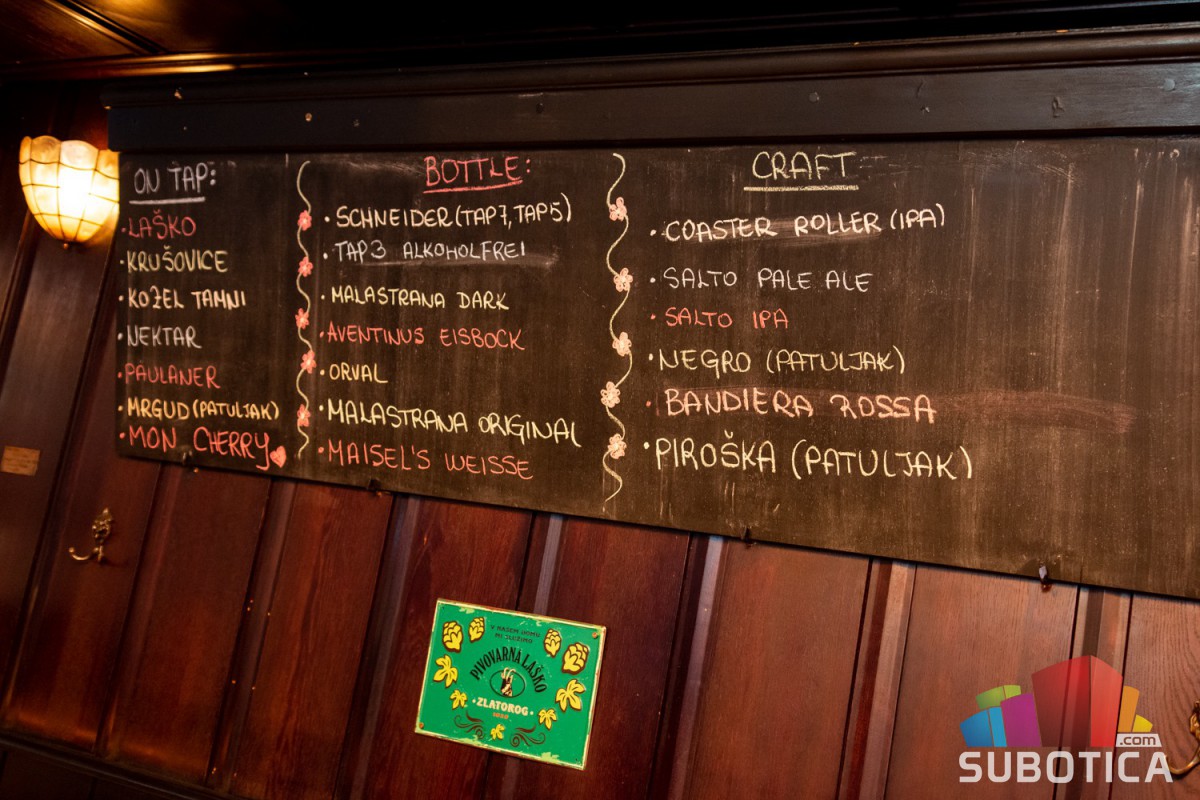 ON TAP:
• LAŠKO
• KRUŠOVICE
• KOZEL TAMNI
• NEKTAR
• PAULANER
• MRGUD (PATULJAK)
• MON CHERRY
BOTTLE:
• SCHNEIDER (TAP7, TAP5)
• TAP3 ALKOHOLFREI
• MALASTRANA DARK
• AVENTINUS EISBOCK
• ORVAL
• MALASTRANA ORIGINAL
• MAISEL'S WEISSE
CRAFT
• COASTER ROLLER (IPA)
• SALTO PALE ALE
• SALTO IPA
• NEGRO (PATULJAK)
• BANDIERA ROSSA
• PIROŠKA (PATULJAK)
V NAŠEM DOMU
MI SLUŽIMO
PIVOVARNA LAŠKO
• ZLATOROG •
.com
SUBOTICA